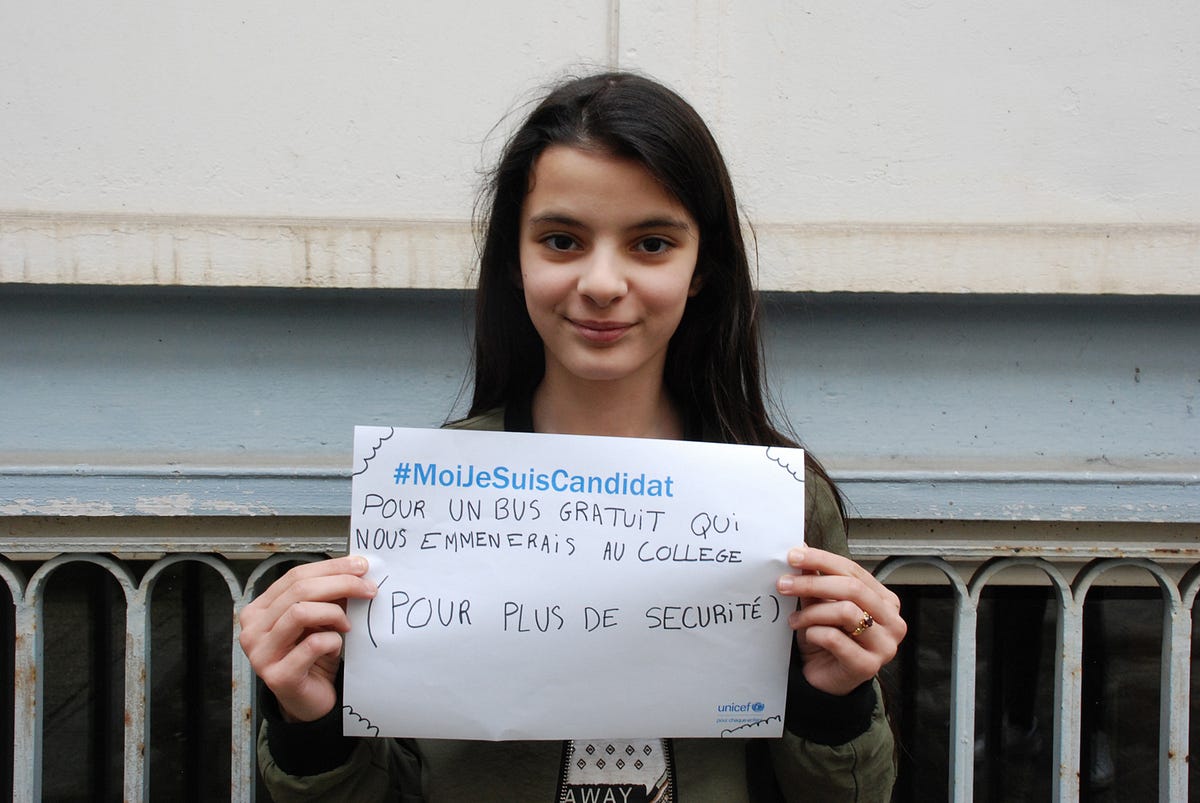 #MoiJeSuisCandidat
POUR UN BUS GRATUIT QUI
NOUS EMMENERAIS AU COLLEGE
(POUR PLUS DE SECURITÉ)
unicef
pour chaque enfant
AWAY